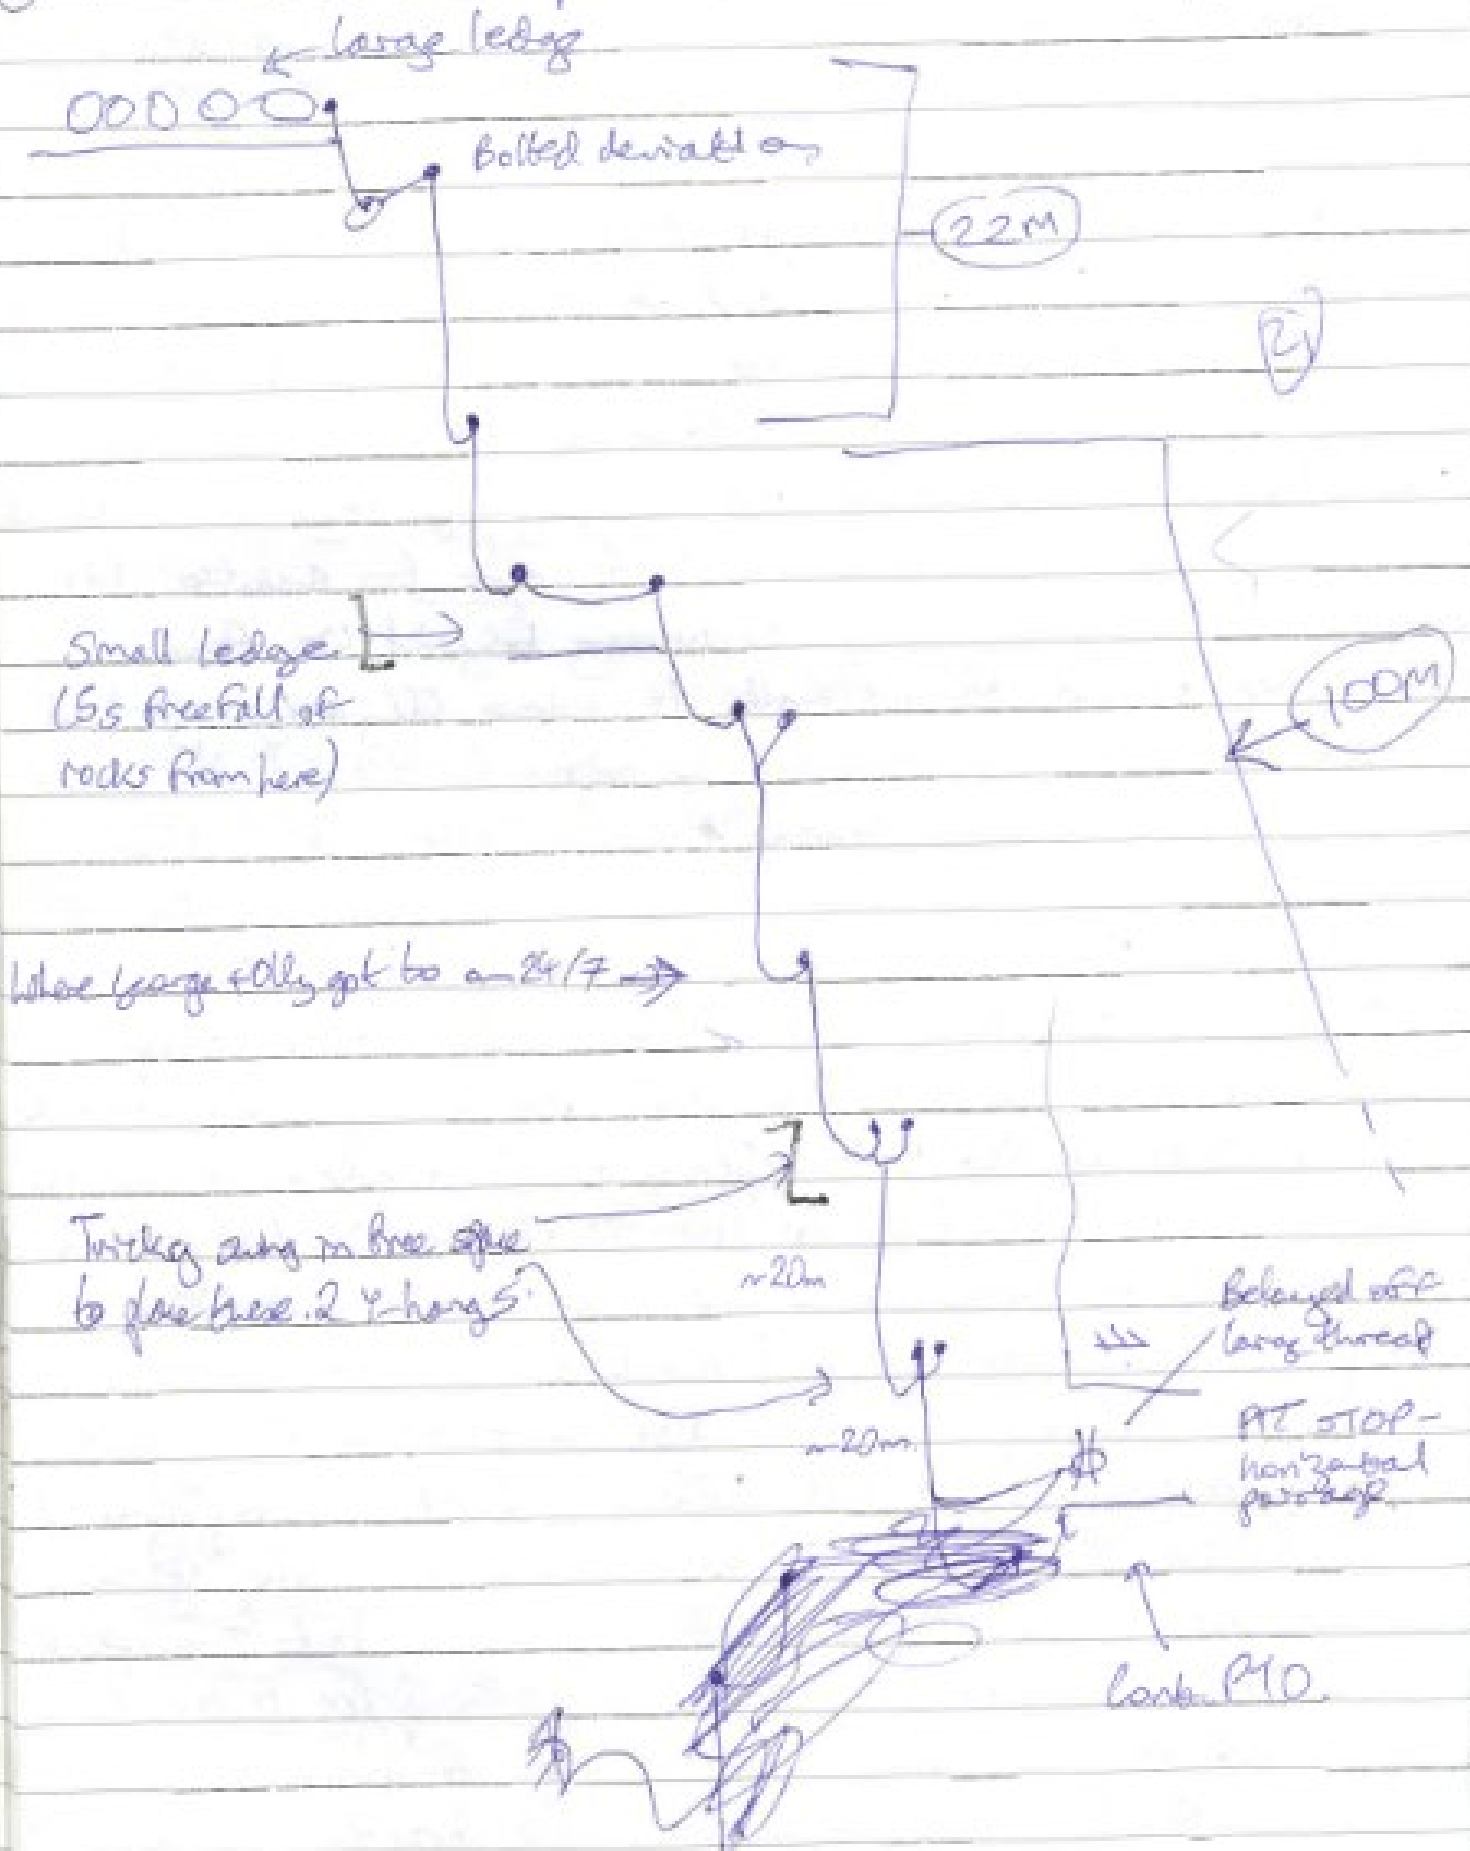 Large ledge
Bolted deviation
22m
2
Small ledge
(5s freefall of
rocks from here)
100m
Where George + Olly got to on 24/7
Tricky swing in free space
to place these 2 Y-hangs
~20m
Belayed off
large thread
~20m
PIT STOP -
horizontal
passage
PTO